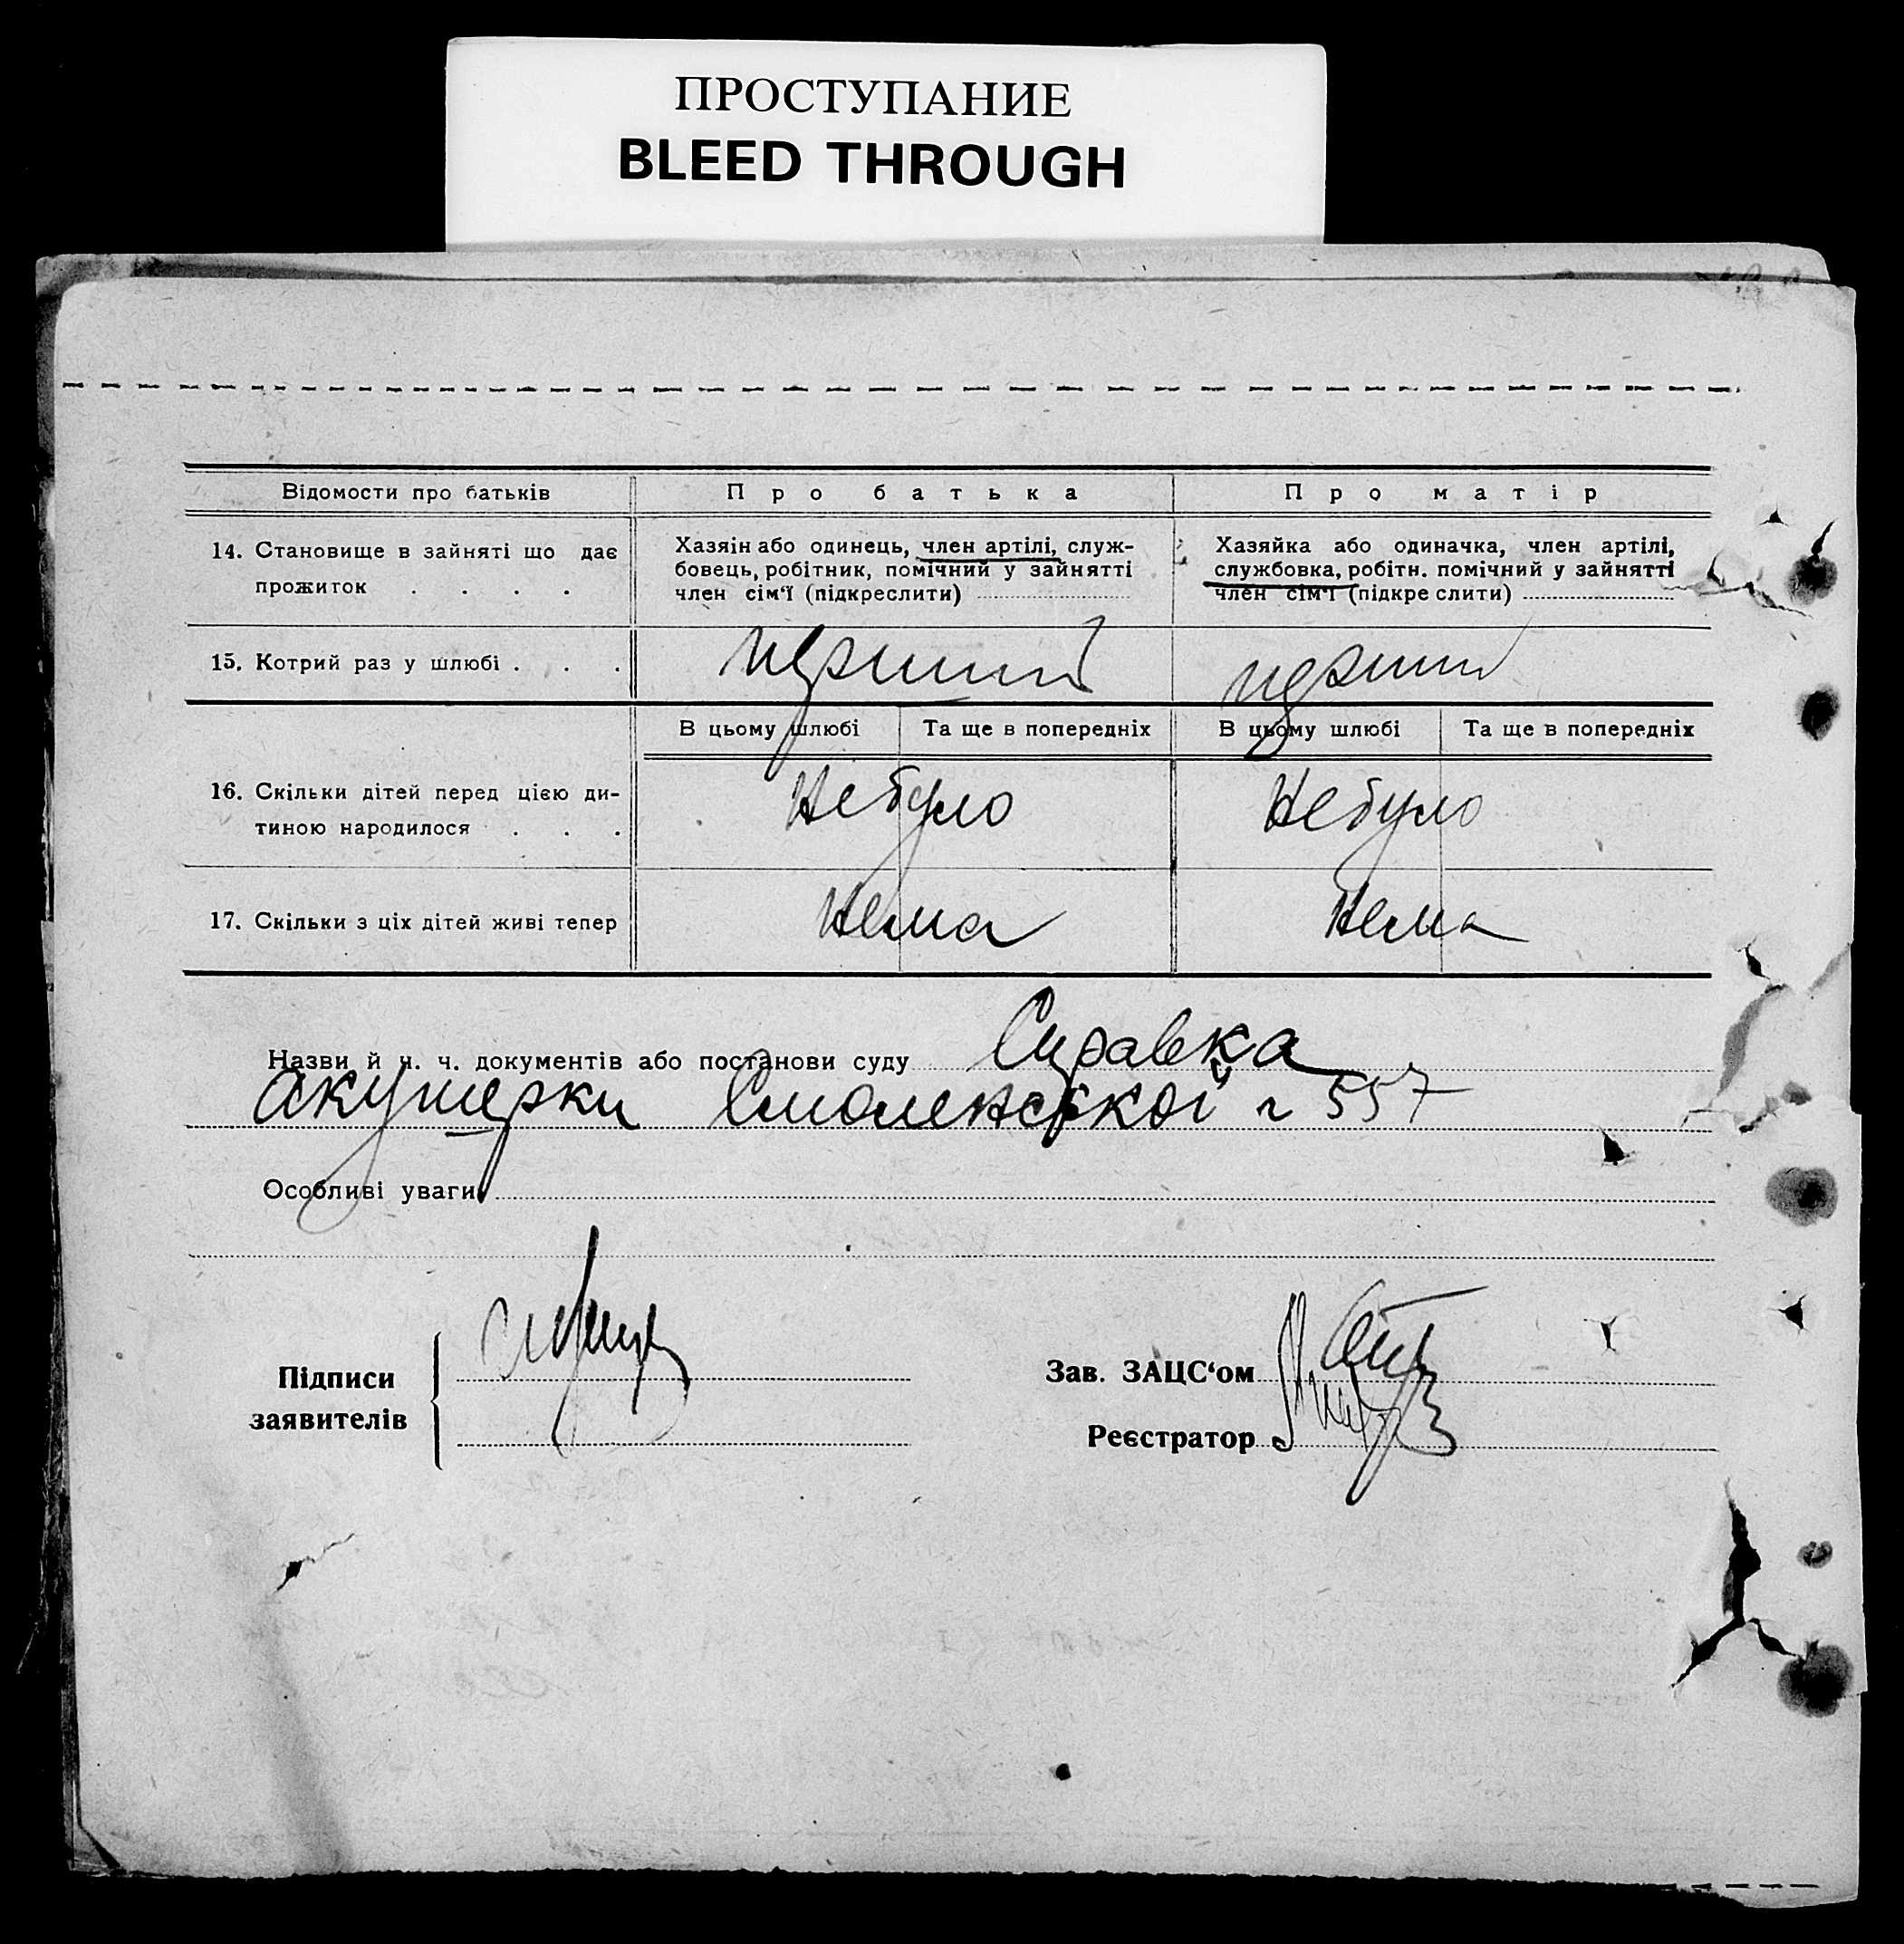 ПРОСТУПАНИЕ
BLEED THROUGH
Відомости про батьків
Про батька
Про матір
14. Становище в зайняті що дає
прожиток . . . .
Хазяін або одинець, член артілі, служ-
бовець, робітник, помічний у зайнятті
член сім‘ї (підкреслити)
Хазяйка або одиначка, член артілі,
службовка, робітн. помічний у зайнятті
член сім‘ї (підкре слити)
15. Котрий раз у шлюбі . . .
перший
перший
В цьому шлюбі
Та ще в попередніх
В цьому шлюбі
Та ще в попередніх
16. Скільки дітей перед цією ди-
тиною народилося . . .
Небуло
Небуло
17. Скільки з ціх дітей живі тепер
Нема
Нема
Назви й ч. ч. документів або постанови суду Справка
акушерки Смоленської 557
Особливі уваги
Підписи
заявителів
Зав. ЗАЦС‘ом
Реєстратор